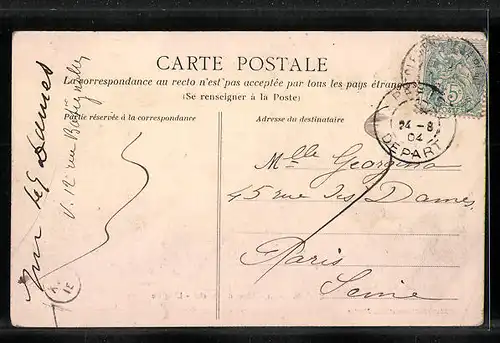 CARTE POSTALE
La correspondance au recto n'est pas acceptée par tous les pays étrangers
(Se renseigner à la Poste)
Partie réservée à la correspondance
Adresse du destinataire
Mlle Georgina
45 rue des Dames
Paris
Seine
V. 12 rue Batignolles
Dames
24 - 8
04
DEPART
5